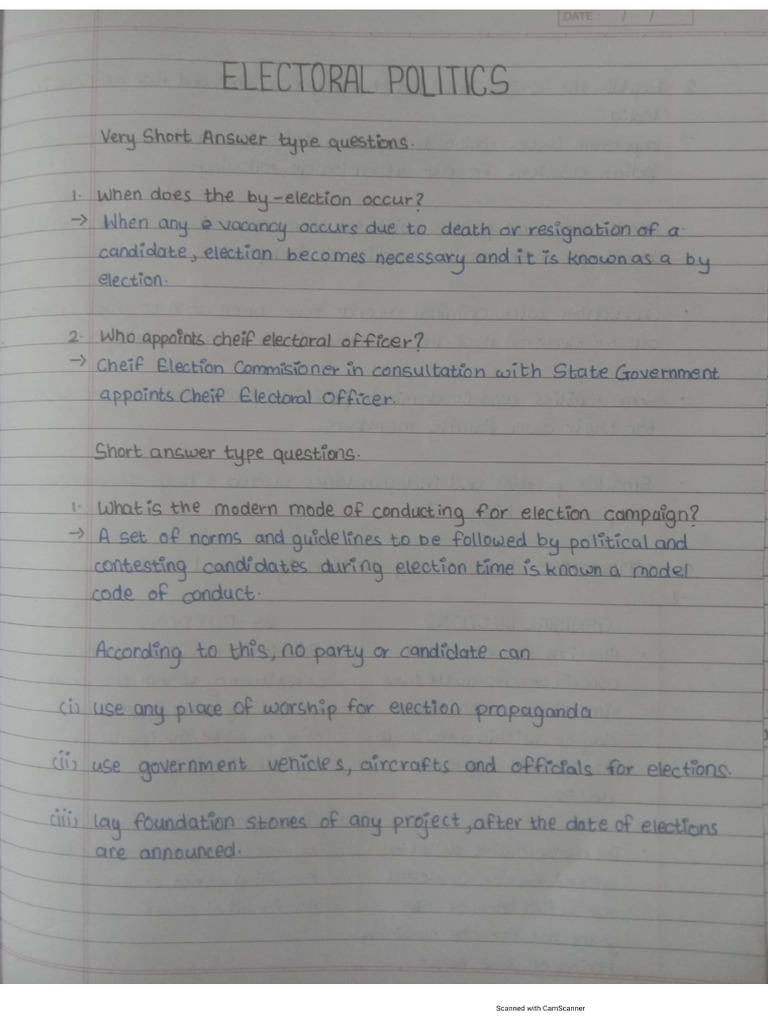 DATE: / /
ELECTORAL POLITICS
Very Short Answer type questions.
1. When does the by-election occur?
→ When any vacancy occurs due to death or resignation of a
candidate, election becomes necessary and it is known as a by
election.
2. Who appoints cheif electoral officer?
→ Cheif Election Commisioner in consultation with State Government
appoints Cheif Electoral Officer.
Short answer type questions.
1. What is the modern mode of conducting for election campaign?
→ A set of norms and guidelines to be followed by political and
contesting candidates during election time is known a model
code of conduct.
According to this, no party or candidate can
(i) use any place of worship for election propaganda
(ii) use government vehicles, aircrafts and officials for elections.
(iii) lay foundation stones of any project, after the date of elections
are announced.
Scanned with CamScanner